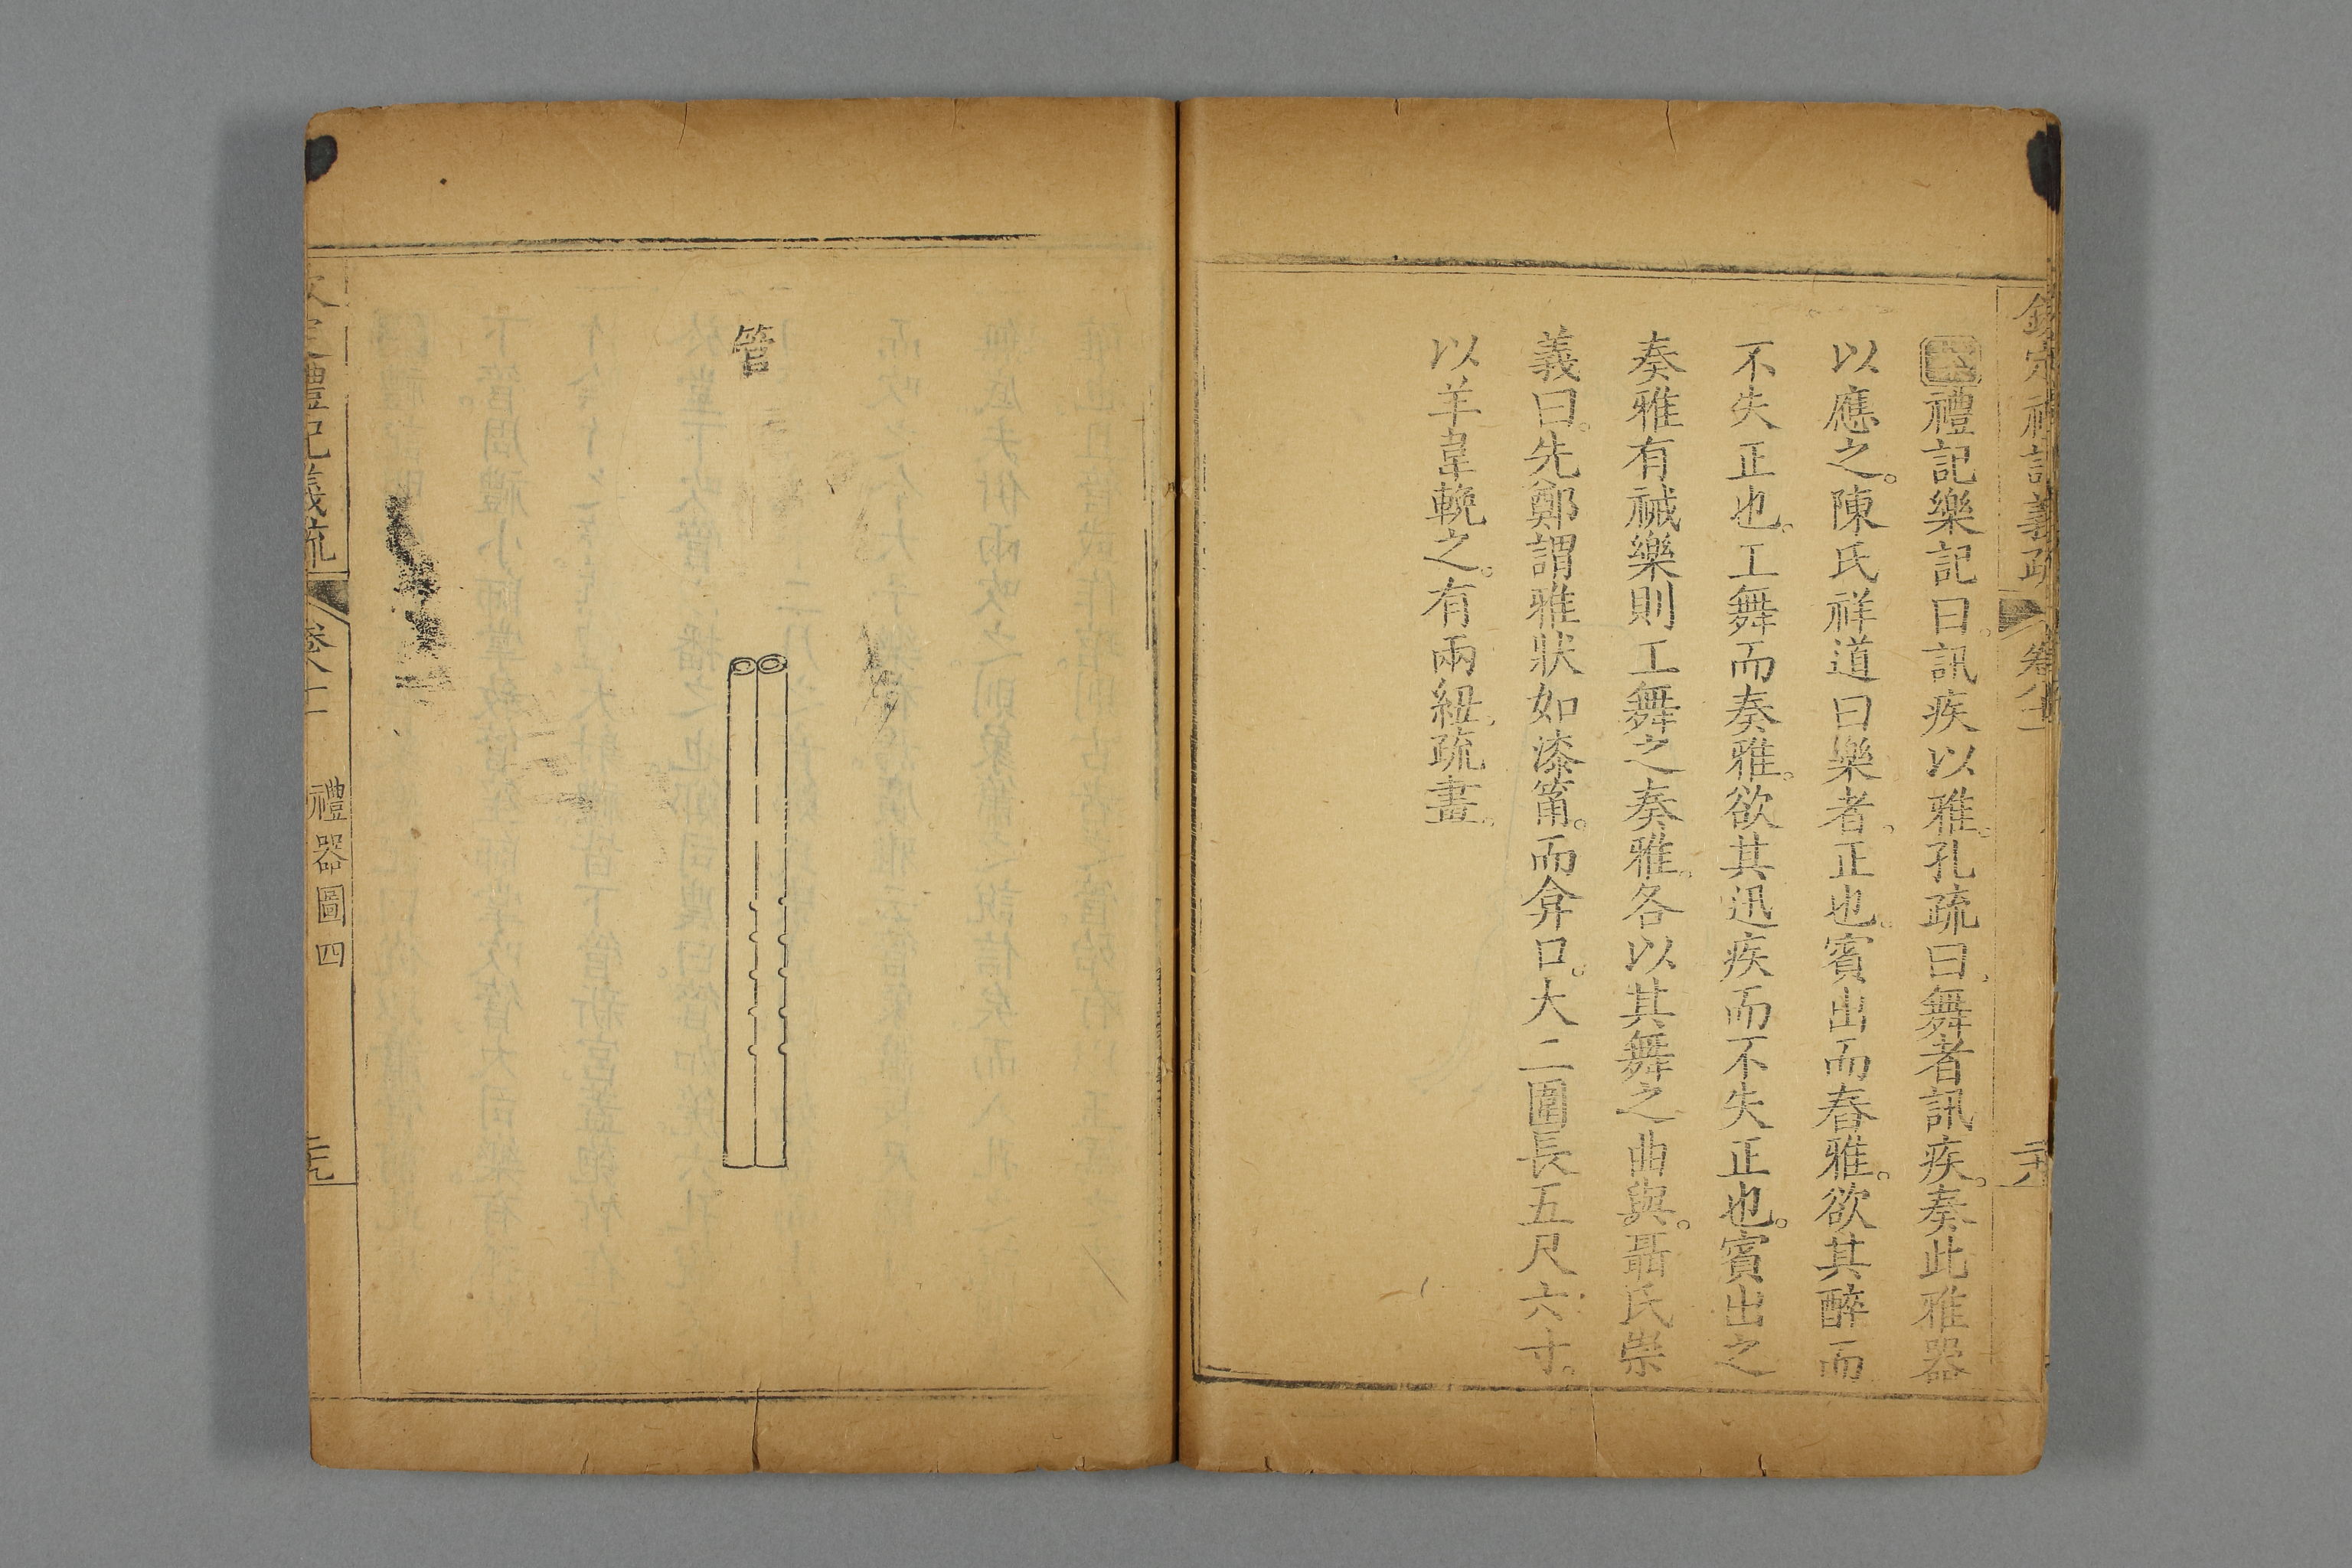 禮記樂記曰訊疾以雅。孔疏曰舞者訊疾。奏此雅器
以應之。陳氏祥道曰樂者。正也。賓出而舂雅。欲其醉而
不失正也。工舞而奏雅。欲其迅疾而不失正也。賓出之
奏雅有祴樂則工舞之奏雅。各以其舞之曲與。聶氏崇
義曰。先鄭謂雅狀如漆筩。而弇口。大二圍長五尺六寸。
以羊韋鞔之。有兩紐。疏畫。
管
禮記義疏
禮器圖四